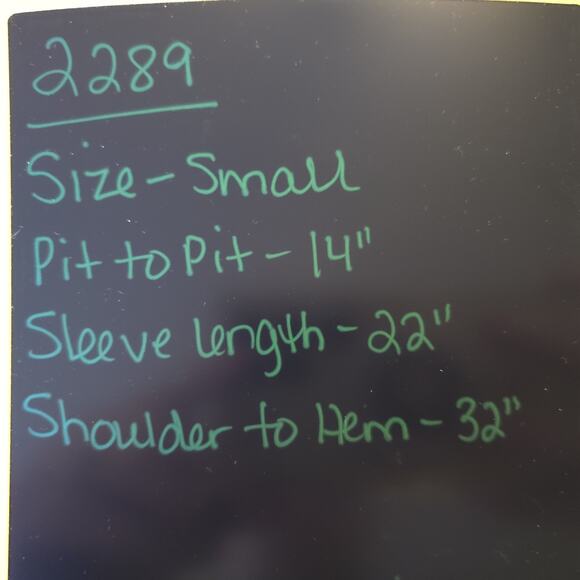 2289
Size - Small
Pit to Pit - 14"
Sleeve length - 22"
Shoulder to Hem - 32"